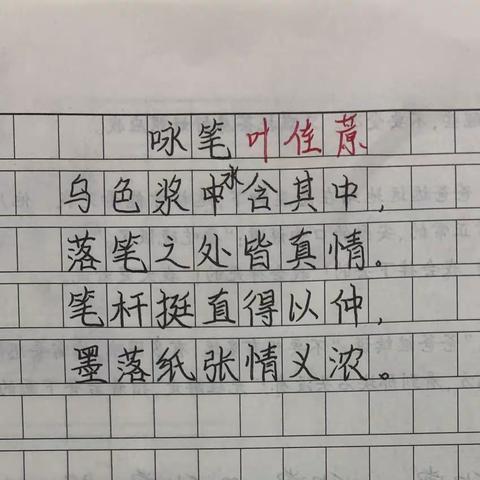 咏笔叶佳蒝
乌色浆水含其中,
落笔之处皆真情。
笔杆挺直得以仲,
墨落纸张情义浓。